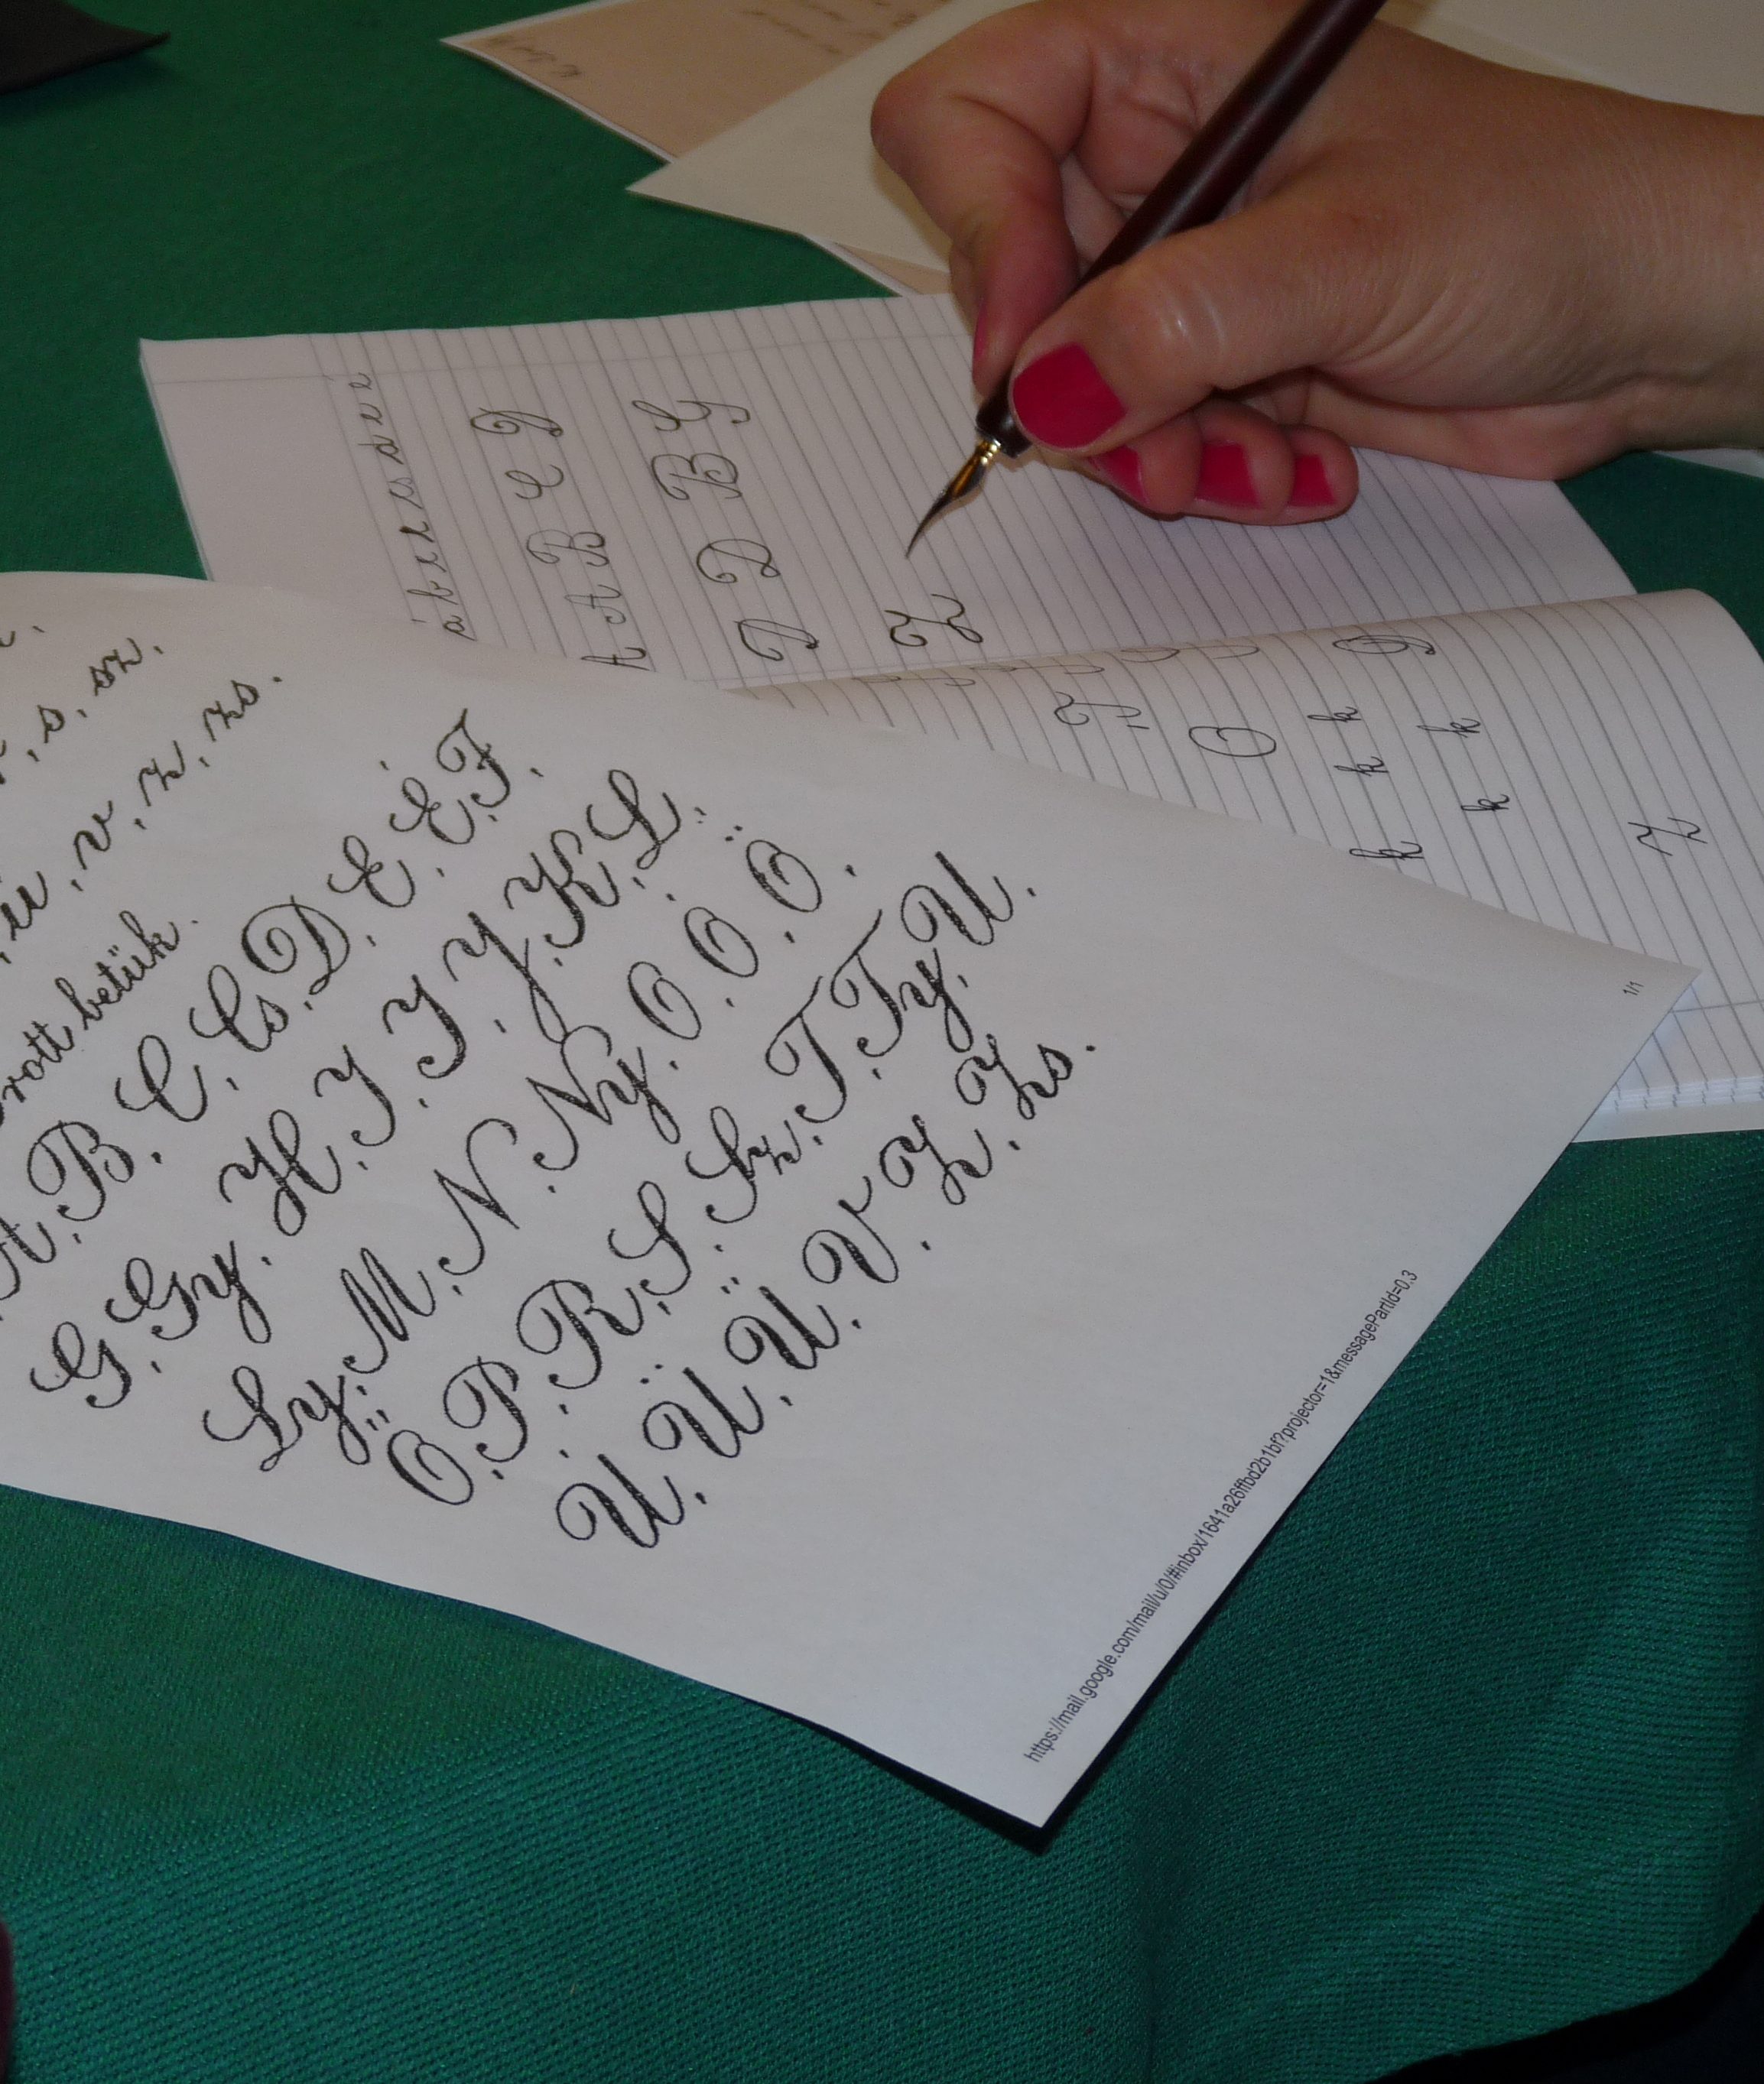 s, sz.
ü, v, z, zs.
betük.
A. B. C. Cs. D. E. É. F.
G. Gy. H. I. J. Y. K. L.
Ly. M. N. Ny. O. Ó. Ö.
Ő. P. R. S. Sz. T. Ty. U.
Ú. Ü. Ű. V. Z. Zs.
https://mail.google.com/mail/u/0/#inbox/1641a26ffbd2b1bf?projector=1&messagePartId=0.3
1/1
á b c c cs d e é
A A B C D
D D B G
Z
O
k k k
k k
Z